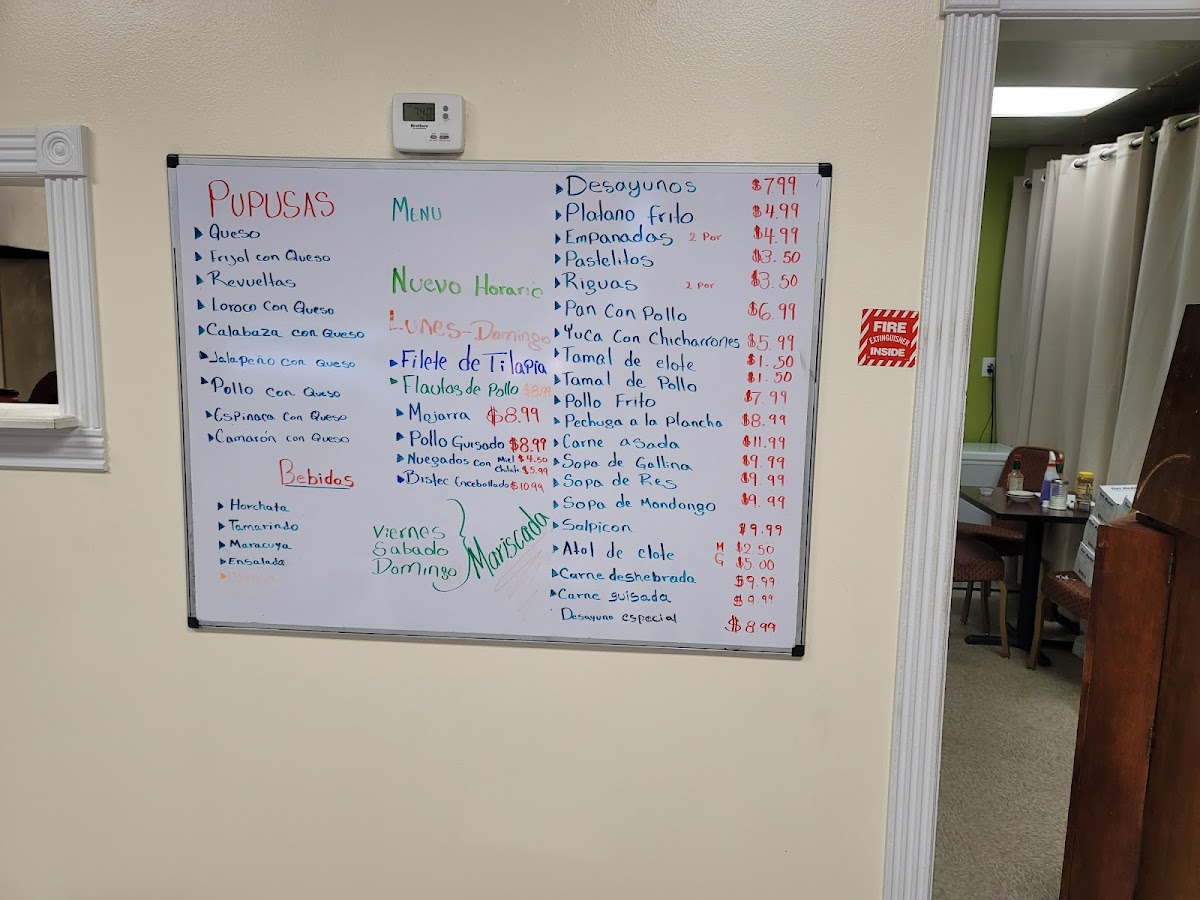 740
PUPUSAS
Queso
Frijol con Queso
Revueltas
Loroco Con Queso
Calabaza con Queso
Jalapeño con Queso
Pollo con Queso
Espinaca Con Queso
Camarón con Queso
Bebidas
Horchata
Tamarindo
Maracuya
Ensalada
MENU
Nuevo Horario
Lunes-Domingo
Filete de Tilapia
Flautas de Pollo $8.99
Mojarra $8.99
Pollo Guisado $8.99
Nuegados con Miel $4.50
Chilate $5.99
Bistec Encebollado $10.99
Viernes
Sabado
Domingo
Mariscada
Desayunos $799
Platano frito $4.99
Empanadas 2 Por $4.99
Pastelitos $3.50
Riguas 2 por $3.50
Pan Con Pollo $6.99
Yuca Con Chicharrones $5.99
Tamal de elote $1.50
Tamal de Pollo $1.50
Pollo Frito $7.99
Pechuga a la Plancha $8.99
Carne asada $11.99
Sopa de Gallina $9.99
Sopa de Res $9.99
Sopa de Mondongo $9.99
Salpicon $9.99
Atol de elote M $2.50
G $5.00
Carne deshebrada $9.99
Carne guisada $9.99
Desayuno especial $8.99
FIRE
EXTINGUISHER
INSIDE